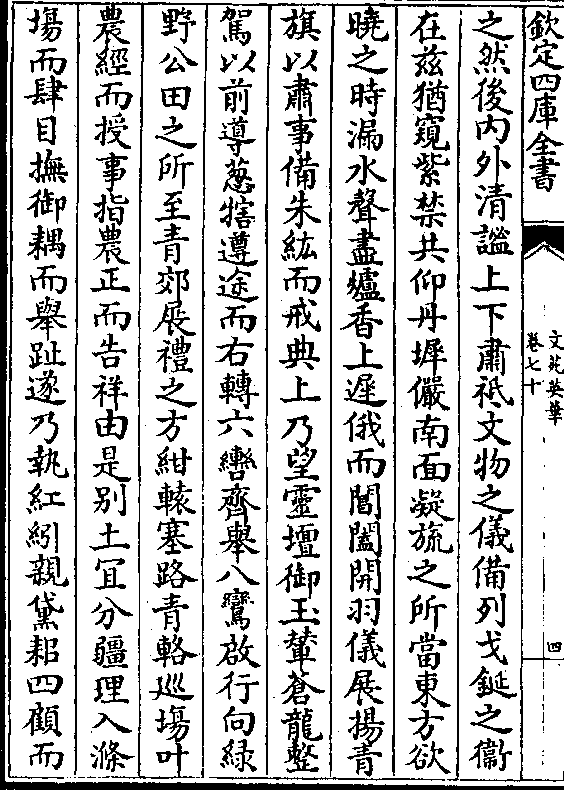 欽定四庫全書
文苑英華
卷七十
四
之然後内外清謐上下肅祗文物之儀備列戈鋋之衞
在兹猶窺紫禁共仰丹墀儼南面凝旒之所當東方欲
曉之時漏水聲盡爐香上遲俄而閶闔開羽儀展揚青
旗以肅事備朱紘而戒典上乃望靈壇御玉輦蒼龍整
駕以前導葱犗遵途而右轉六轡齊舉八鸞啟行向緑
野公田之所至青郊展禮之方紺轅塞路青輅巡塲叶
農經而授事指農正而告祥由是别土宜分疆理入滌
塲而肆目撫御耦而舉趾遂乃執紅紖親黛耜四顧而